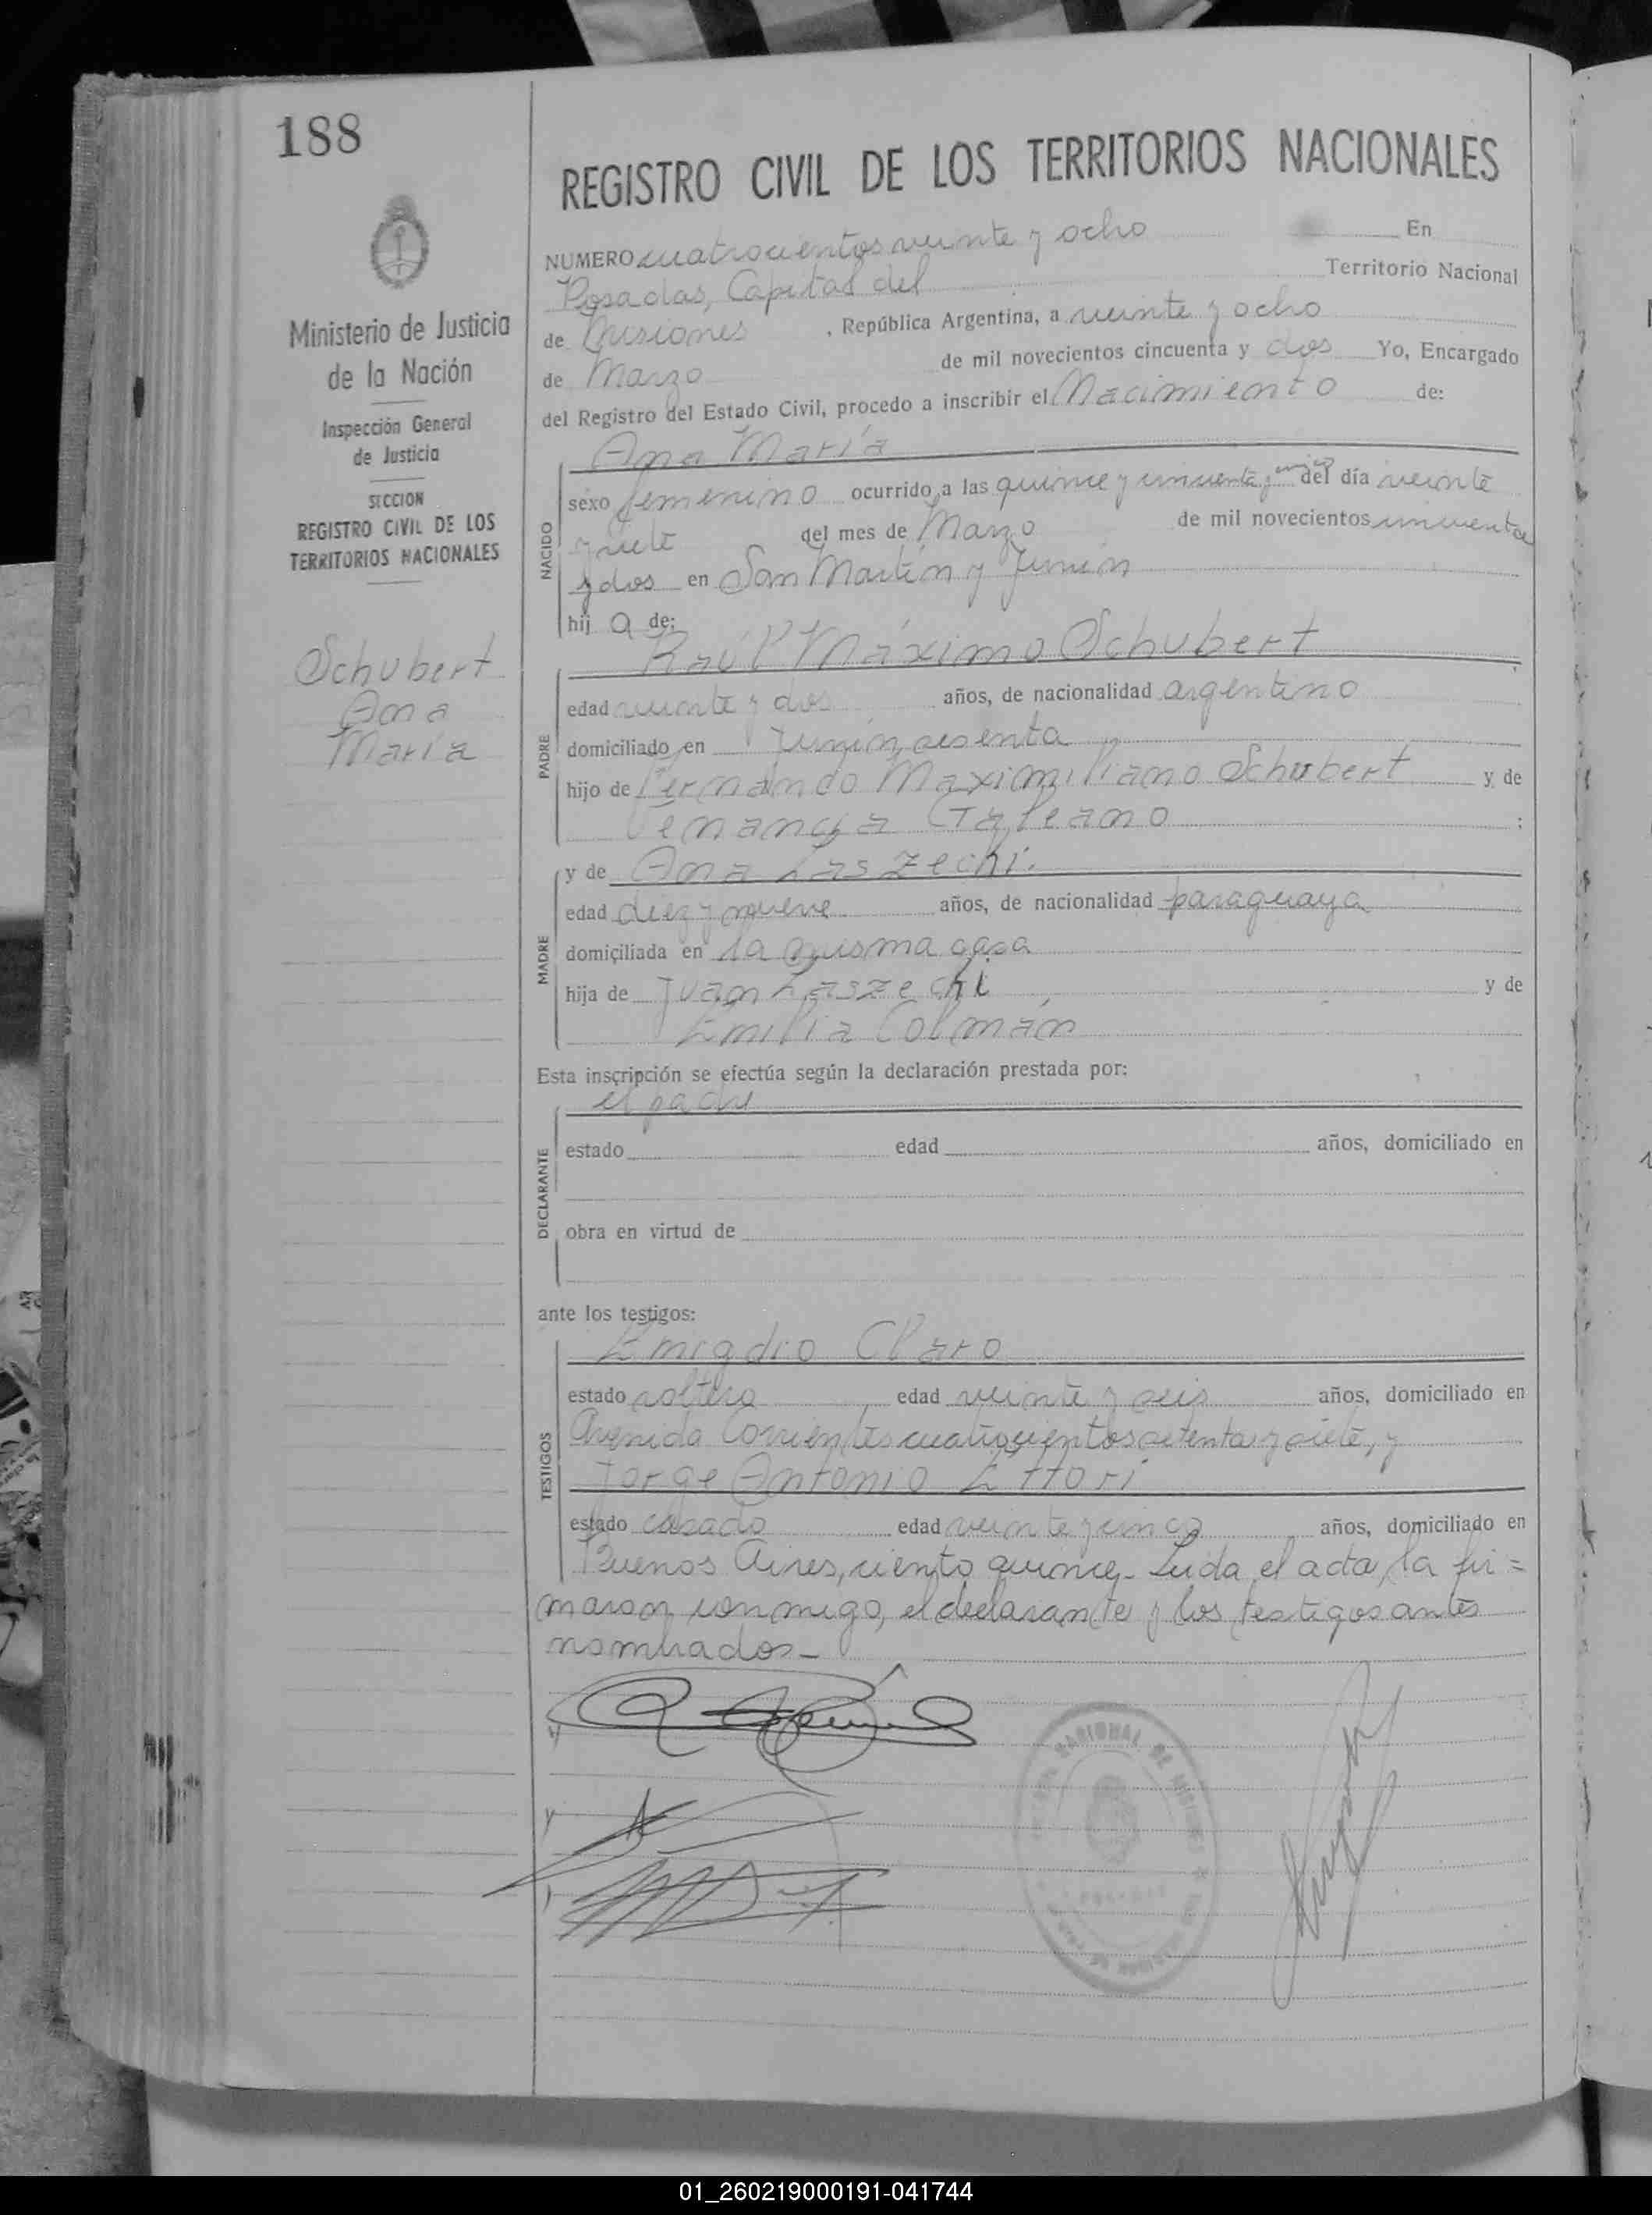 188
REGISTRO CIVIL DE LOS TERRITORIOS NACIONALES
Ministerio de Justicia
de la Nación
Inspección General
de Justicia
SECCION
REGISTRO CIVIL DE LOS
TERRITORIOS NACIONALES
Schubert
Ana
María
NUMERO cuatrocientos veinte y ocho En
Posadas, Capital del Territorio Nacional
de Misiones, República Argentina, a veinte y ocho
de Marzo de mil novecientos cincuenta y dos Yo, Encargado
del Registro del Estado Civil, procedo a inscribir el Nacimiento de:
Ana María
NACIDO
sexo femenino ocurrido a las quince y cincuenta y cinco del día veinte
y siete del mes de Marzo de mil novecientos cincuenta
y dos en San Martín y Junín
hij a de:
Raúl Máximo Schubert
PADRE
edad veinte y dos años, de nacionalidad argentino
domiciliado en Junín, sesenta
hijo de Fernando Maximiliano Schubert y de
Venancia Galeano
MADRE
y de Ana Laszechi.
edad diez y nueve años, de nacionalidad paraguaya
domiciliada en la misma casa
hija de Juan Laszechi y de
Emilia Colmán
Esta inscripción se efectúa según la declaración prestada por:
el padre
DECLARANTE
estado edad años, domiciliado en
obra en virtud de
ante los testigos:
Emigdio Claro
TESTIGOS
estado soltero edad veinte y seis años, domiciliado en
Avenida Corrientes cuatrocientos setenta y siete, y
Jorge Antonio Ettori
estado casado edad veinte y cinco años, domiciliado en
Buenos Aires, ciento quince. Leida el acta, la fir=
maron conmigo, el declarante y los testigos antes
nombrados.-
01_260219000191-041744